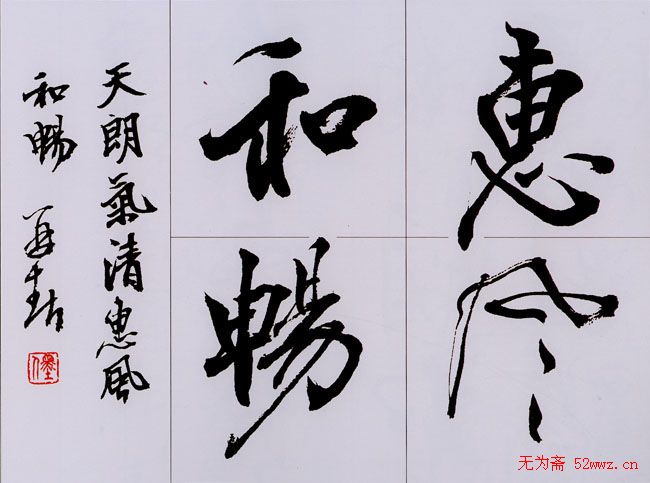 惠風
和暢
天朗氣清惠風
和暢
无为斋 52wwz.cn